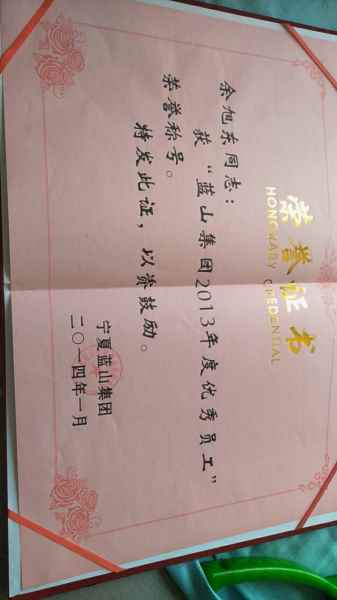 荣誉证书
HONORARY CREDENTIAL
余旭东同志：
获“蓝山集团2013年度优秀员工”
荣誉称号。
特发此证，以资鼓励。
宁夏蓝山集团
二〇一四年一月